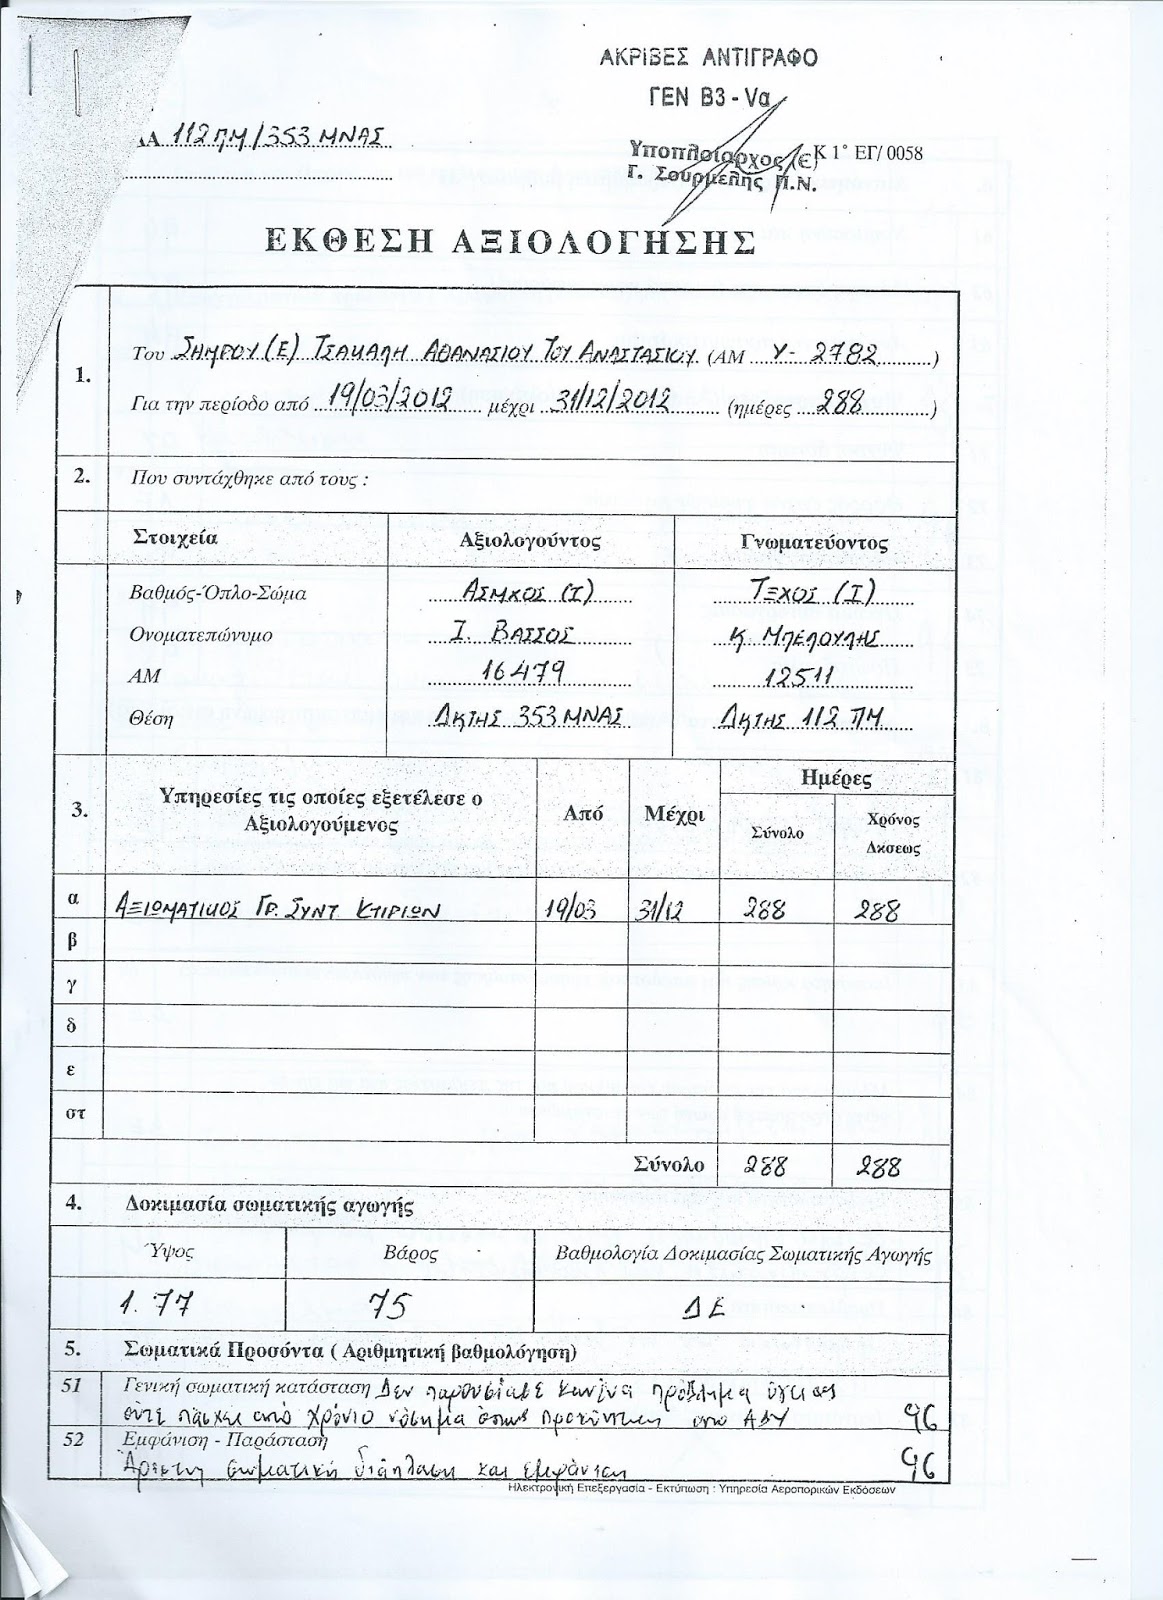 ΑΚΡΙΒΕΣ ΑΝΤΙΓΡΑΦΟ
ΓΕΝ Β3 - Vα
ΔΑ 112 ΠΜ/353 ΜΝΑΣ
Υποπλοίαρχος (Ε) Κ 1° ΕΓ/ 0058
Γ. Σουρμελής Π.Ν.
ΕΚΘΕΣΗ ΑΞΙΟΛΟΓΗΣΗΣ
1.
Του ΣΗΜΡΟΥ (Ε) ΤΣΑΚΑΛΗ ΑΘΑΝΑΣΙΟΥ ΤΟΥ ΑΝΑΣΤΑΣΙΟΥ (ΑΜ Υ- 2782)
Για την περίοδο από 19/03/2012 μέχρι 31/12/2012 (ημέρες 288)
2. Που συντάχθηκε από τους :
Στοιχεία Αξιολογούντος Γνωματεύοντος
Βαθμός-Όπλο-Σώμα ΑΣΜΧΟΣ (Τ) ΤΞΧΟΣ (Ι)
Ονοματεπώνυμο Ι. ΒΑΣΣΟΣ Κ. ΜΠΕΛΟΥΛΗΣ
ΑΜ 16479 12511
Θέση ΔΚΤΗΣ 353 ΜΝΑΣ ΔΚΤΗΣ 112 ΠΜ
3. Υπηρεσίες τις οποίες εξετέλεσε ο Αξιολογούμενος Από Μέχρι Ημέρες
Σύνολο Χρόνος Δκσεως
α ΑΞΙΩΜΑΤΙΚΟΣ ΓΡ. ΣΥΝΤ. ΚΤΙΡΙΩΝ 19/03 31/12 288 288
β
γ
δ
ε
στ
Σύνολο 288 288
4. Δοκιμασία σωματικής αγωγής
Ύψος Βάρος Βαθμολογία Δοκιμασίας Σωματικής Αγωγής
1.77 75 ΔΕ
5. Σωματικά Προσόντα ( Αριθμητική βαθμολόγηση)
51 Γενική σωματική κατάσταση Δεν παρουσίασε κανένα πρόβλημα υγείας
ούτε πάσχει από χρόνιο νόσημα όπως προκύπτει από ΑΔΥ 96
52 Εμφάνιση - Παράσταση
Άριστη σωματική διάπλαση και εμφάνιση 96
Ηλεκτρονική Επεξεργασία - Εκτύπωση : Υπηρεσία Αεροπορικών Εκδόσεων